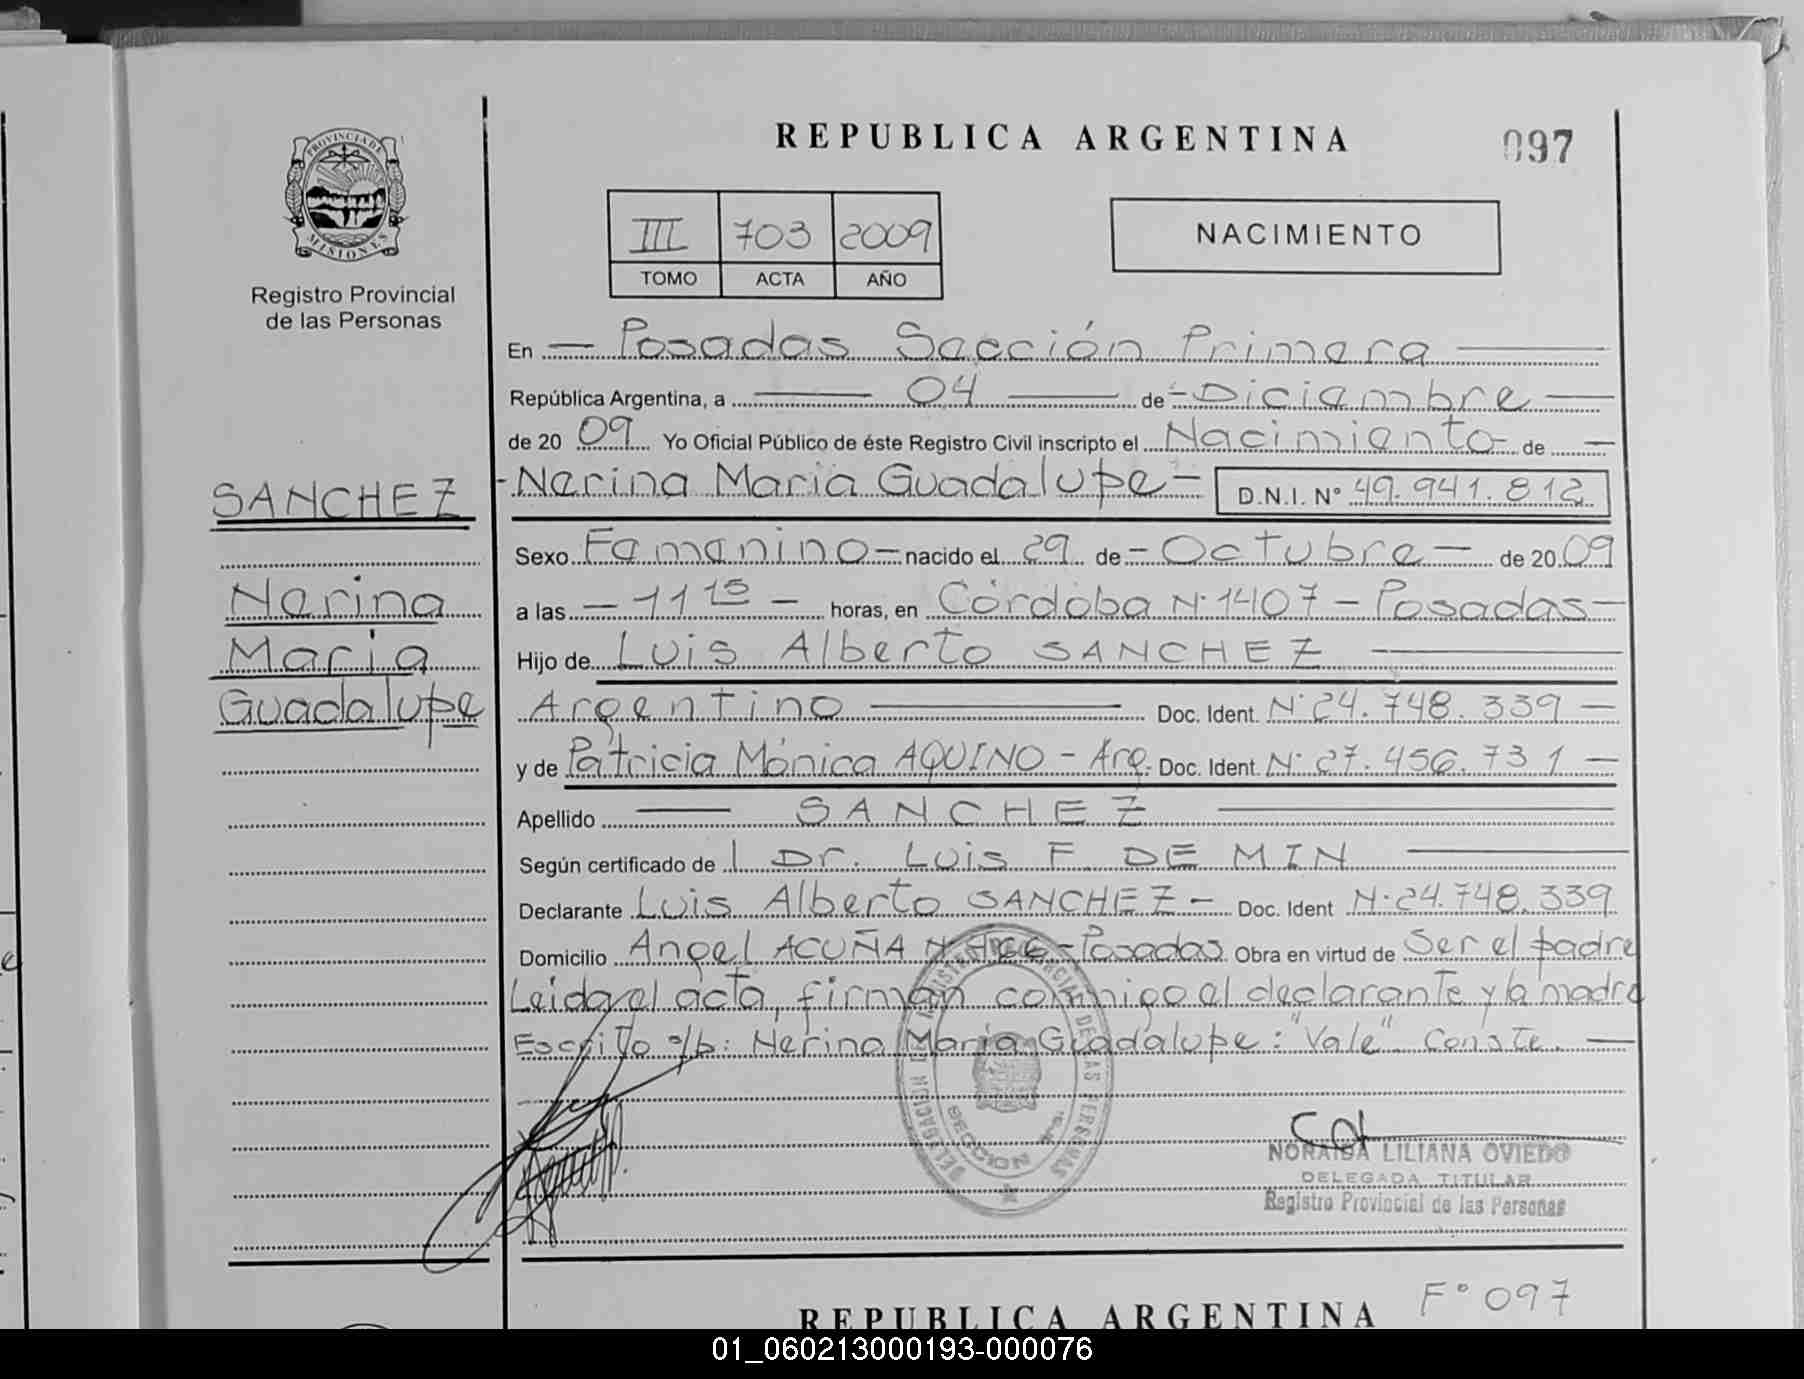 REPUBLICA ARGENTINA
097
PROVINCIA DE
MISIONES
Registro Provincial
de las Personas
III 703 2009
TOMO ACTA AÑO
NACIMIENTO
En — Posadas Sección Primera —
República Argentina, a — 04 — de - Diciembre —
de 20 09 Yo Oficial Público de éste Registro Civil inscripto el Nacimiento - de —
SANCHEZ
- Nerina María Guadalupe - D.N.I. N° 49.941.812
Sexo Femenino - nacido el 29 de - Octubre - de 20 09
Nerina
a las - 11 15 - horas, en Córdoba N° 1407 - Posadas -
María
Hijo de Luis Alberto SANCHEZ —
Guadalupe
Argentino — Doc. Ident. N° 24.748.339 -
y de Patricia Mónica AQUINO - Arg. Doc. Ident. N° 27.456.731 -
Apellido — SANCHEZ —
Según certificado de l Dr. Luis F. DE MIN —
Declarante Luis Alberto SANCHEZ - Doc. Ident N° 24.748.339
Domicilio Angel ACUÑA N° - Posadas. Obra en virtud de Ser el padre
Leida el acta, firman conmigo el declarante y la madre
Escrito s/b: Nerina María Guadalupe: "Vale". Conste. —
DELEGACION MINISTERIO PROVINCIAL DE LAS PERSONAS
SECCION 1ra.
NORAIDA LILIANA OVIEDO
DELEGADA TITULAR
Registro Provincial de las Personas
F° 097
REPUBLICA ARGENTINA
01_060213000193-000076